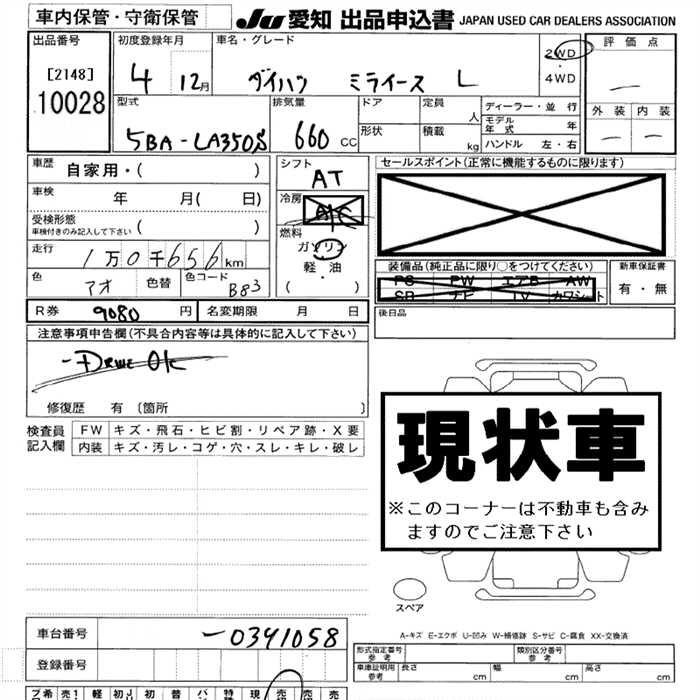 車内保管・守衛保管
JU 愛知 出品申込書 JAPAN USED CAR DEALERS ASSOCIATION
出品番号
[2148]
10028
初度登録年月
4 12月
車名・グレード
ダイハツ ミライース L
2WD
・
4WD
評価点
—
外装 内装
— —
型式
5BA-LA350S
排気量
660 CC
ドア
形状
定員
人
積載
kg
ディーラー・並行
モデル年式 年
ハンドル 左・右
車歴 自家用・( )
車検 年 月( 日)
受検形態
車検付きのみ記入して下さい ( )
走行 1万0千656km
色 アオ 色替 色コード B83
シフト
AT
冷房
A/C
燃料
ガソリン
軽・油
( )
セールスポイント(正常に機能するものに限ります)
装備品(純正品に限り○をつけてください)
PS PW エアB AW
SR ナビ TV カワシート
新車保証書
有・無
R券 9080 円 名変期限 月 日
後日品
注意事項申告欄(不具合内容等は具体的に記入して下さい)
-Drive OK
修復歴 有〔箇所 〕
検査員記入欄
FW キズ・飛石・ヒビ割・リペア跡・X要
内装 キズ・汚レ・コゲ・穴・スレ・キレ・破レ
現状車
※このコーナーは不動車も含み
ますのでご注意下さい
スペア
A-キズ E-エクボ U-凹み W-補修跡 S-サビ C-腐食 XX-交換済
車台番号 -0341058
登録番号
形式指定番号
参考
類別区分番号
参考
車庫証明用
参考
長さ 幅 高さ
cm cm cm